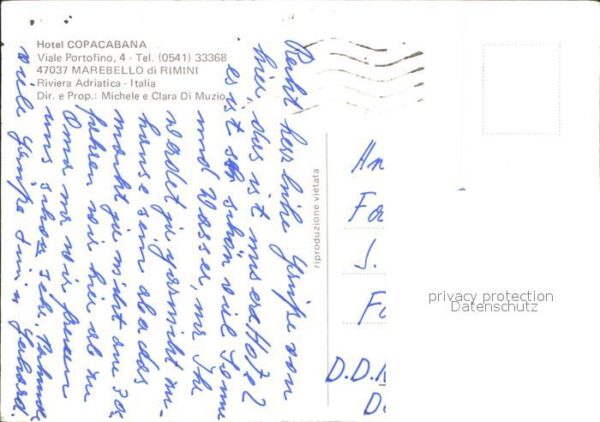 Hotel COPACABANA
Viale Portofino, 4 - Tel. (0541) 33368
47037 MAREBELLO di RIMINI
Riviera Adriatica - Italia
Dir. e Prop.: Michele e Clara Di Muzio
Recht herzliche Grüße von
hier, das ist unser Hotel
es ist schön viel Sonne
und Wasser, nur Ihr
werdet ja gar nicht zu
hause sein aber das
macht ja nichts am 30
fahren wir hier ab zu
Oma wir freuen
uns schon sehr,
viele Grüße Gerhard.
riproduzione vietata
An
Fa
J.
D.D.
privacy protection
Datenschutz